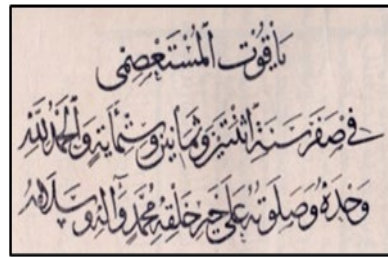 ياقوت المستعصمي
في صفر سنة اثنتين وثمانين وستمائة والحمد لله
وحده وصلوته على خير خلقه محمد وآله وسلامه